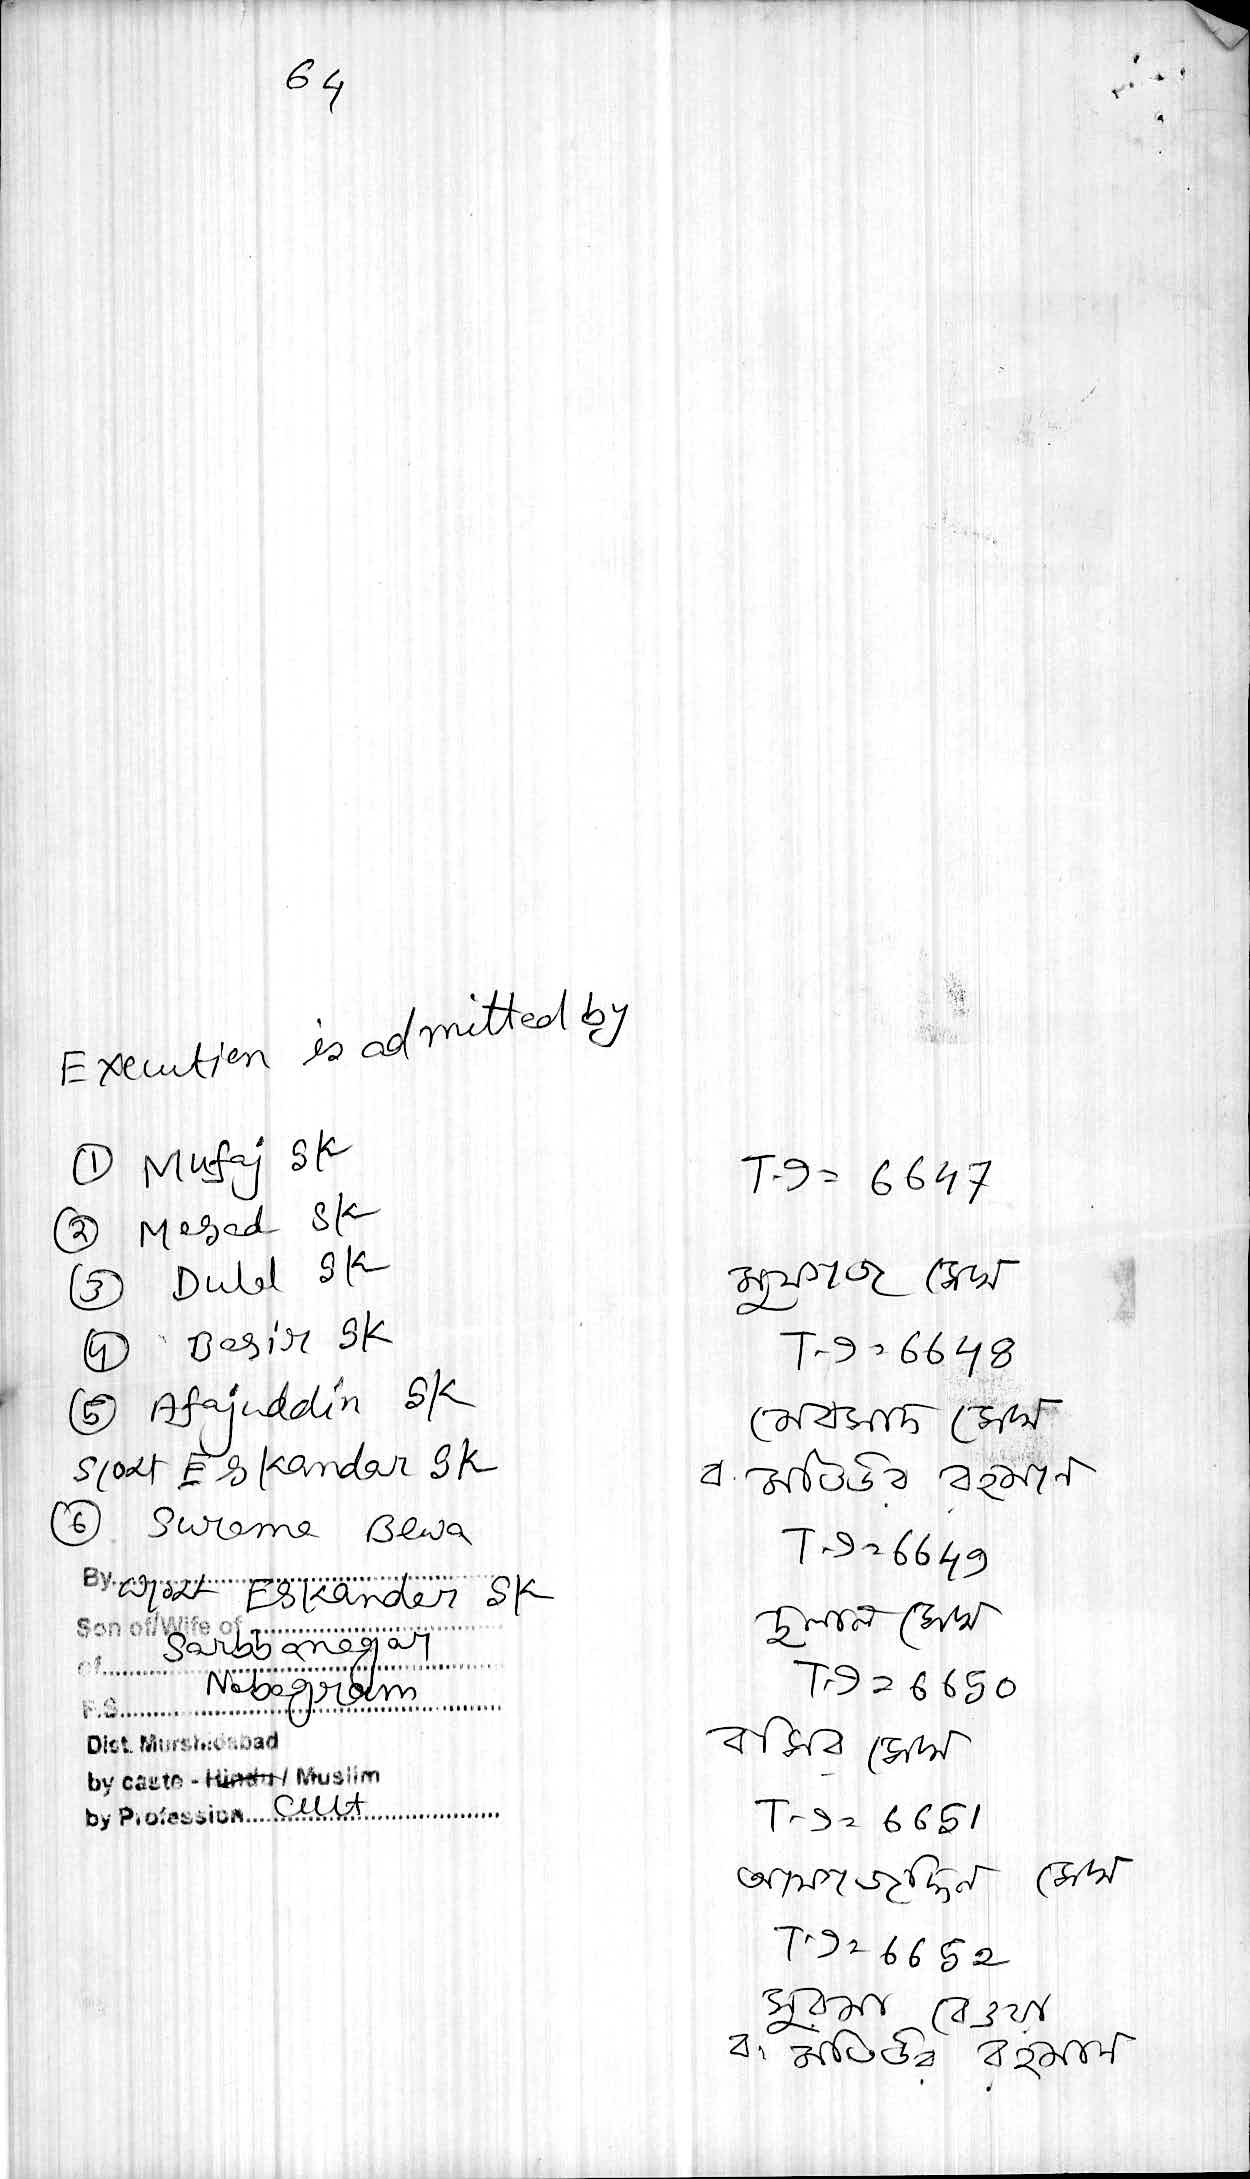 64
Execution is admitted by
① Mufaj Sk
② Mesad Sk
③ Dulal Sk
④ Basir Sk
⑤ Afajuddin Sk
S/o Lt Eskandar Sk
⑥ Surama Bewa
By W/o Lt Eskander Sk
Son of/Wife of
Sarbbanagar
of
Nabagram
P.S.
Dist. Murshidabad
by caste - Hindu / Muslim
by Profession Cult
T.I = 6647
মুফাজ সেখ
T.I = 6648
মেরসাদ সেখ
ব. মতিউর রহমান
T.I = 6649
দুলাল সেখ
T.I = 6650
বাসির সেখ
T.I = 6651
আফাজদ্দিন সেখ
T.I = 6652
সুরমা বেওয়া
ব. মতিউর রহমান